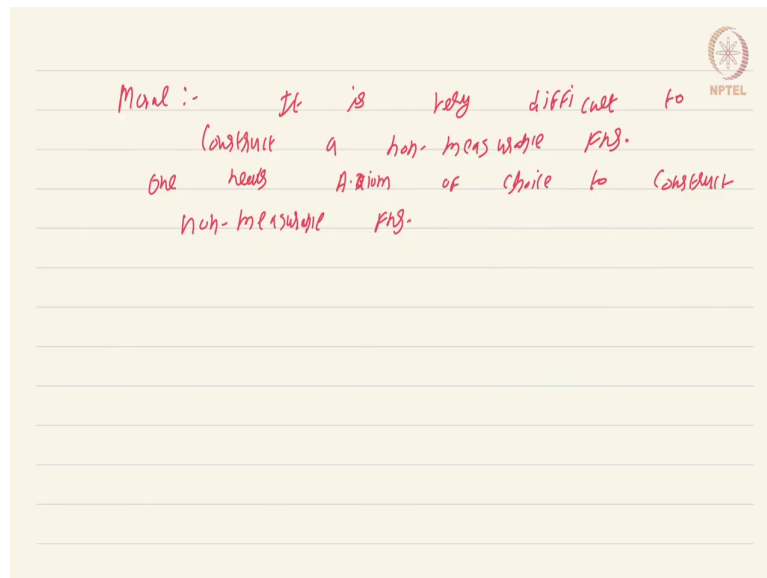 NPTEL
Moral :- It is very difficult to
construct a non-measurable Fns.
One needs Axiom of choice to construct
non-measurable Fns.